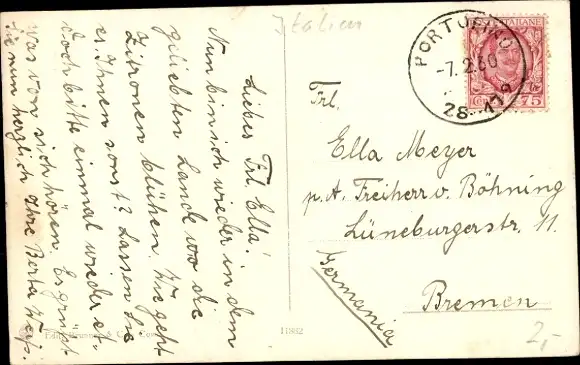 Italien
Liebes Frl. Ella!
Nun bin ich wieder in dem
geliebten Lande wo die
Zitronen blühen. Wie geht
es Ihnen sonst? Lassen Sie
doch bitte einmal wieder et-
was von sich hören. Es grüsst
Sie nun herzlich Ihre Berta
PORTOFINO
-7.2.30
ITALIANE
75
Frl.
Ella Meyer
p. A. Freiherr v. Böhning
Lüneburgerstr. 11.
Bremen
Germania
11952
2,-